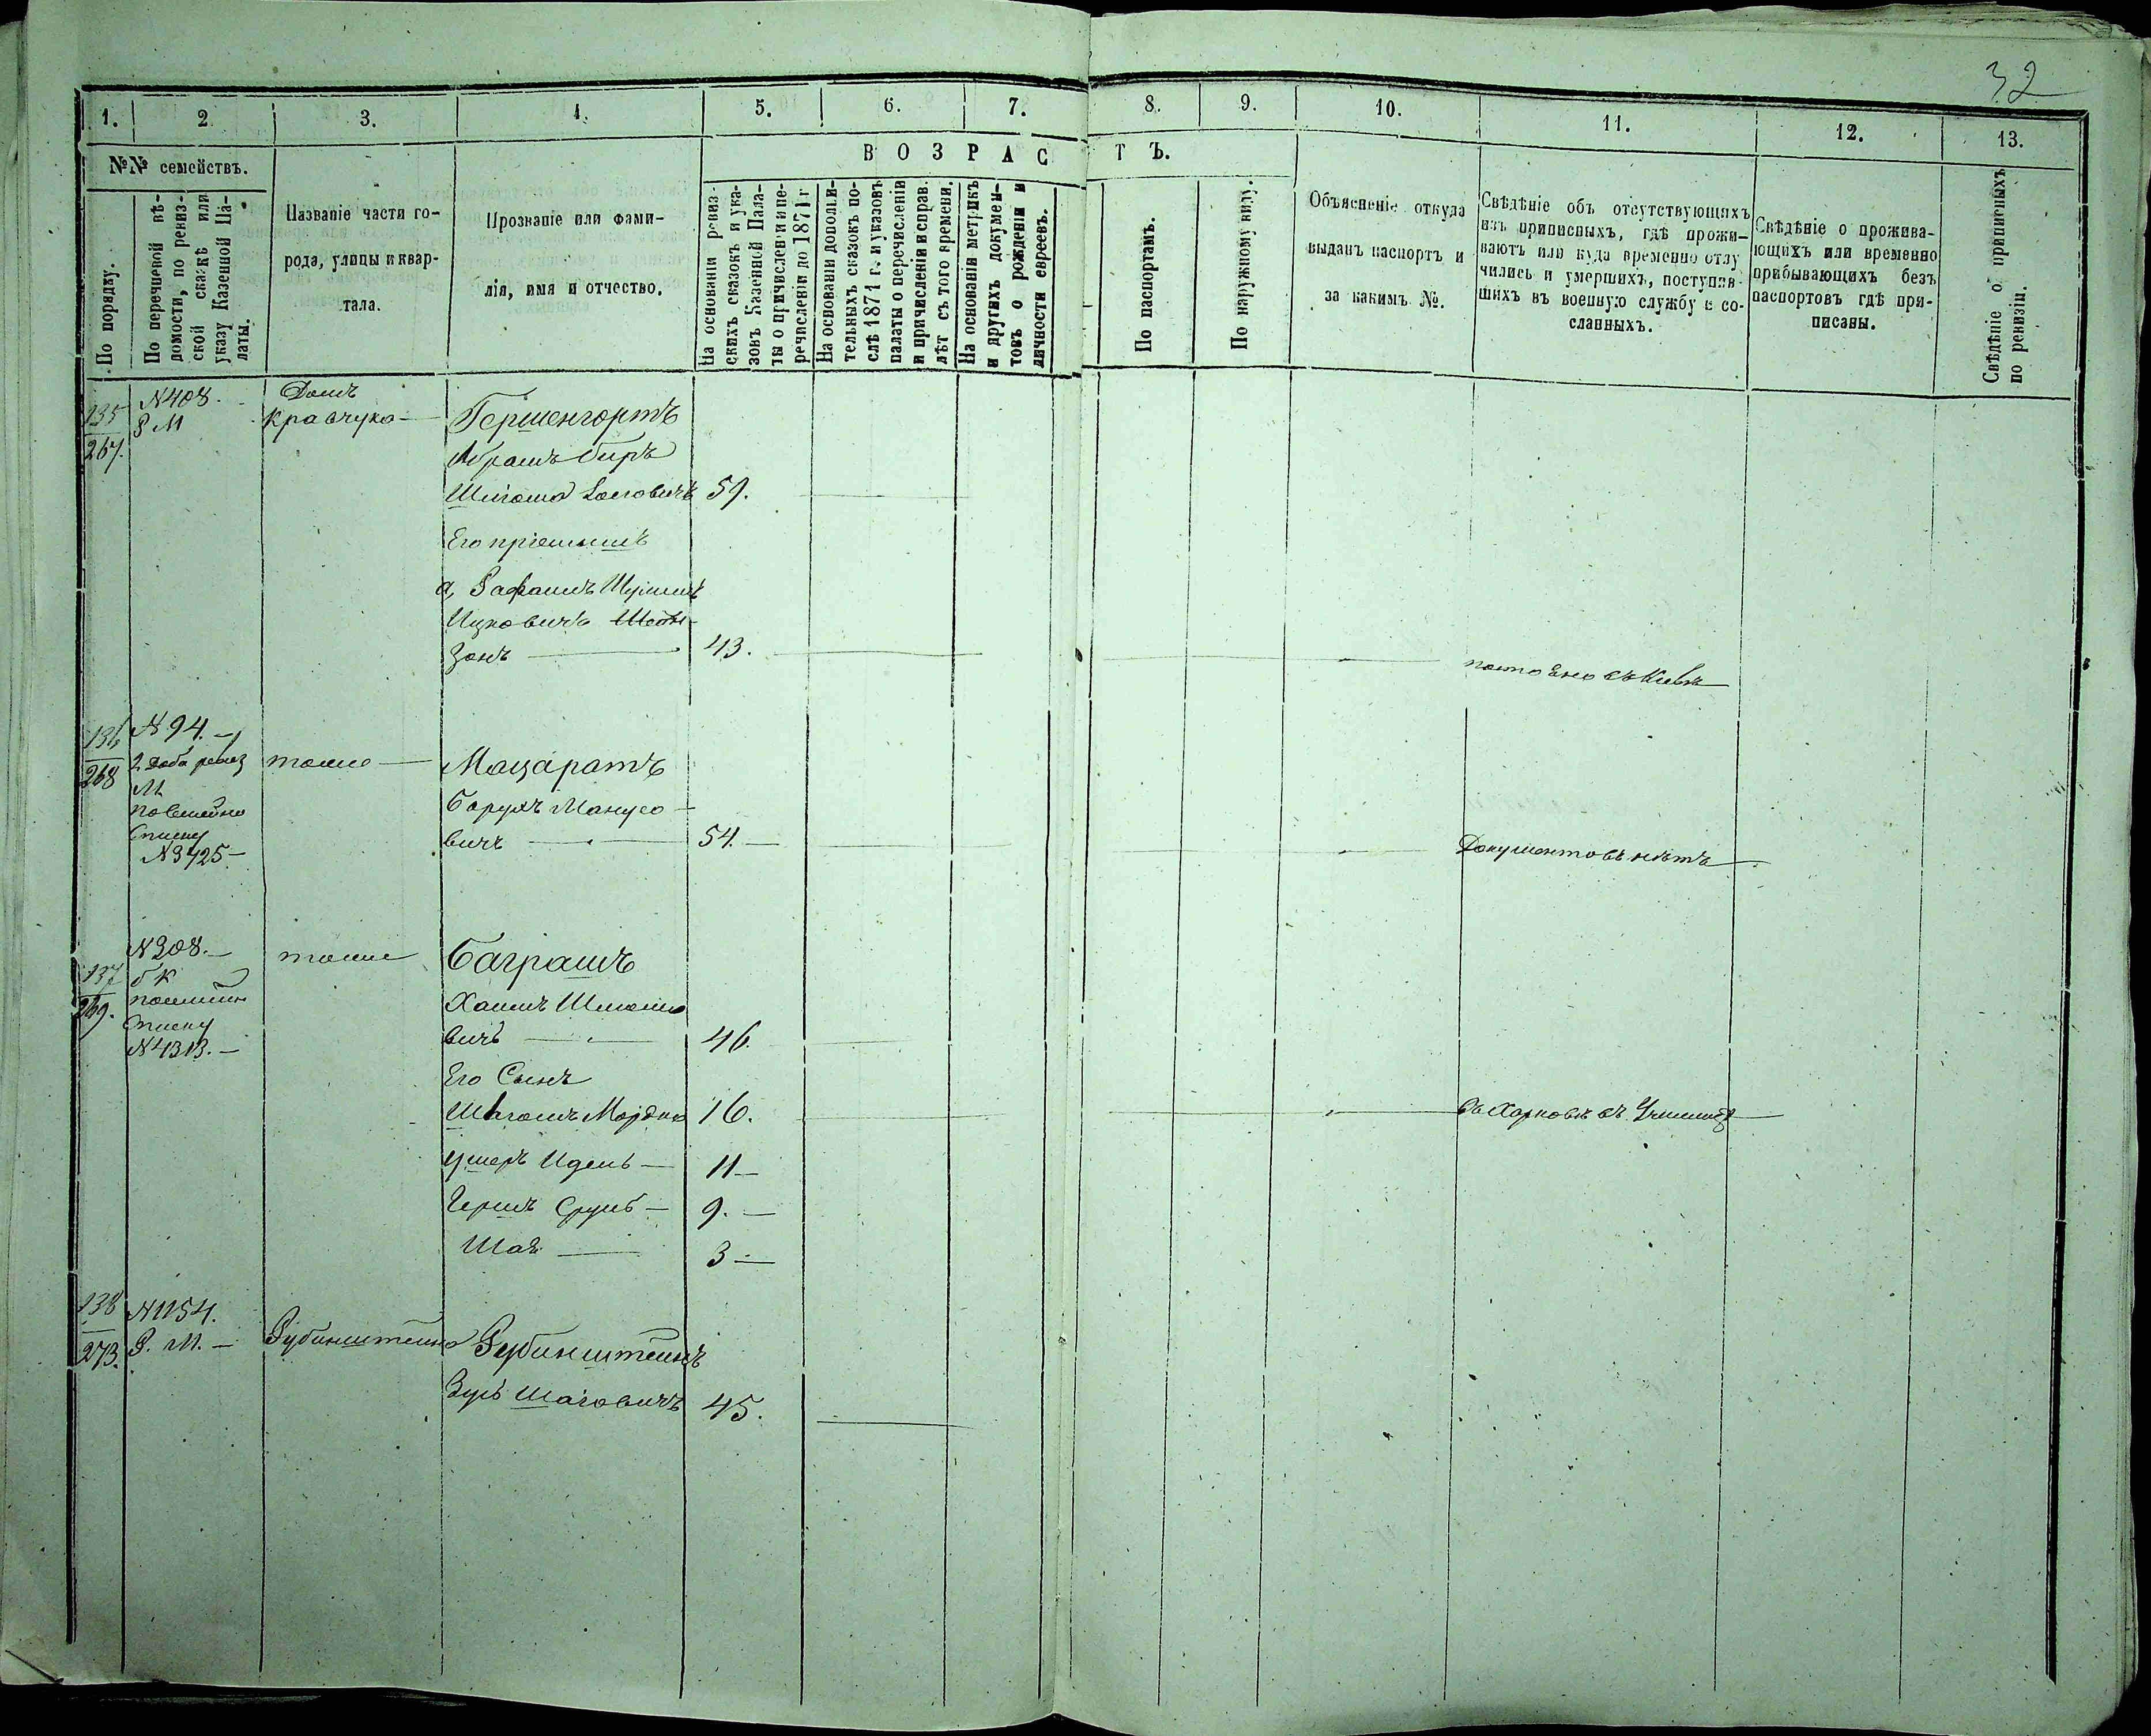 32
1. 2 3. 4. 5. 6. 7. 8. 9. 10. 11. 12. 13.
№№ семействъ.
В О З Р А С Т Ъ.
По порядку.
По перечневой вѣ-
домости, по ревиз-
ской сказкѣ или
указу Казенной Па-
латы.
Названіе части го-
рода, улицы и квар-
тала.
Прозваніе или фами-
лія, имя и отчество.
На основаніи ревиз-
скихъ сказокъ и ука-
зовъ Казенной Пала-
ты о причисленіи и пе-
речисленіи до 1871 г
На основаніи дополни-
тельныхъ сказокъ по-
слѣ 1871 г. и указовъ
палаты о перечисленіи
и причисленіи и справ.
лѣт съ того времени.
На основаніи метрикъ
и другихъ докумен-
товъ о рожденіи и
личности евреевъ.
По паспортамъ.
По наружному виду.
Объясненіе откуда
выданъ паспортъ и
за какимъ №.
Свѣдѣніе объ отсутствующихъ
изъ приписныхъ, гдѣ прожи-
ваютъ или куда временно отлу
чились и умершихъ, поступив-
шихъ въ военную службу и со-
сланныхъ.
Свѣдѣніе о прожива-
ющихъ или временно
прибывающихъ безъ
паспортовъ гдѣ при-
писаны.
Свѣдѣніе о приписныхъ
по ревизіи.
135
267.
N408.
Р М
Домъ
Кравчука
Гершенгортъ
Абрамъ Беръ
59.
Его пріемышъ
Ицковичъ
зонъ 43.
136
268
N 94.
2 ревиз
М
списку
N3425
тоже
Мацаратъ
Борухъ Манусо
вичъ 54.
Документовъ нѣтъ
137
269.
N308.
списку
N4313.
тоже
Баграшъ
Хаимъ
вичъ 46.
Его Сынъ
16.
въ Харковѣ въ
Ушеръ Идель 11
Гершъ Сруль 9.
Шая 3
138
273.
N1154.
Р. М.
Рубинштейна
Рубинштейнъ
45.